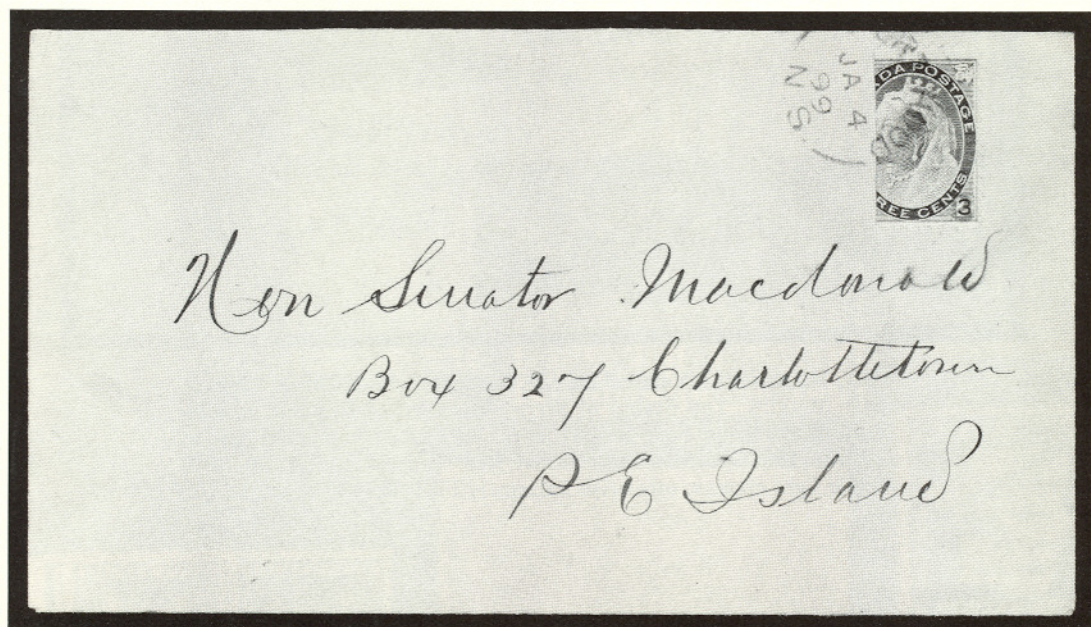 JA 4
99
N.S.
DA POSTAGE
REE CENTS
3
Hon Senator Macdonald
Box 327 Charlottetown
P E Island